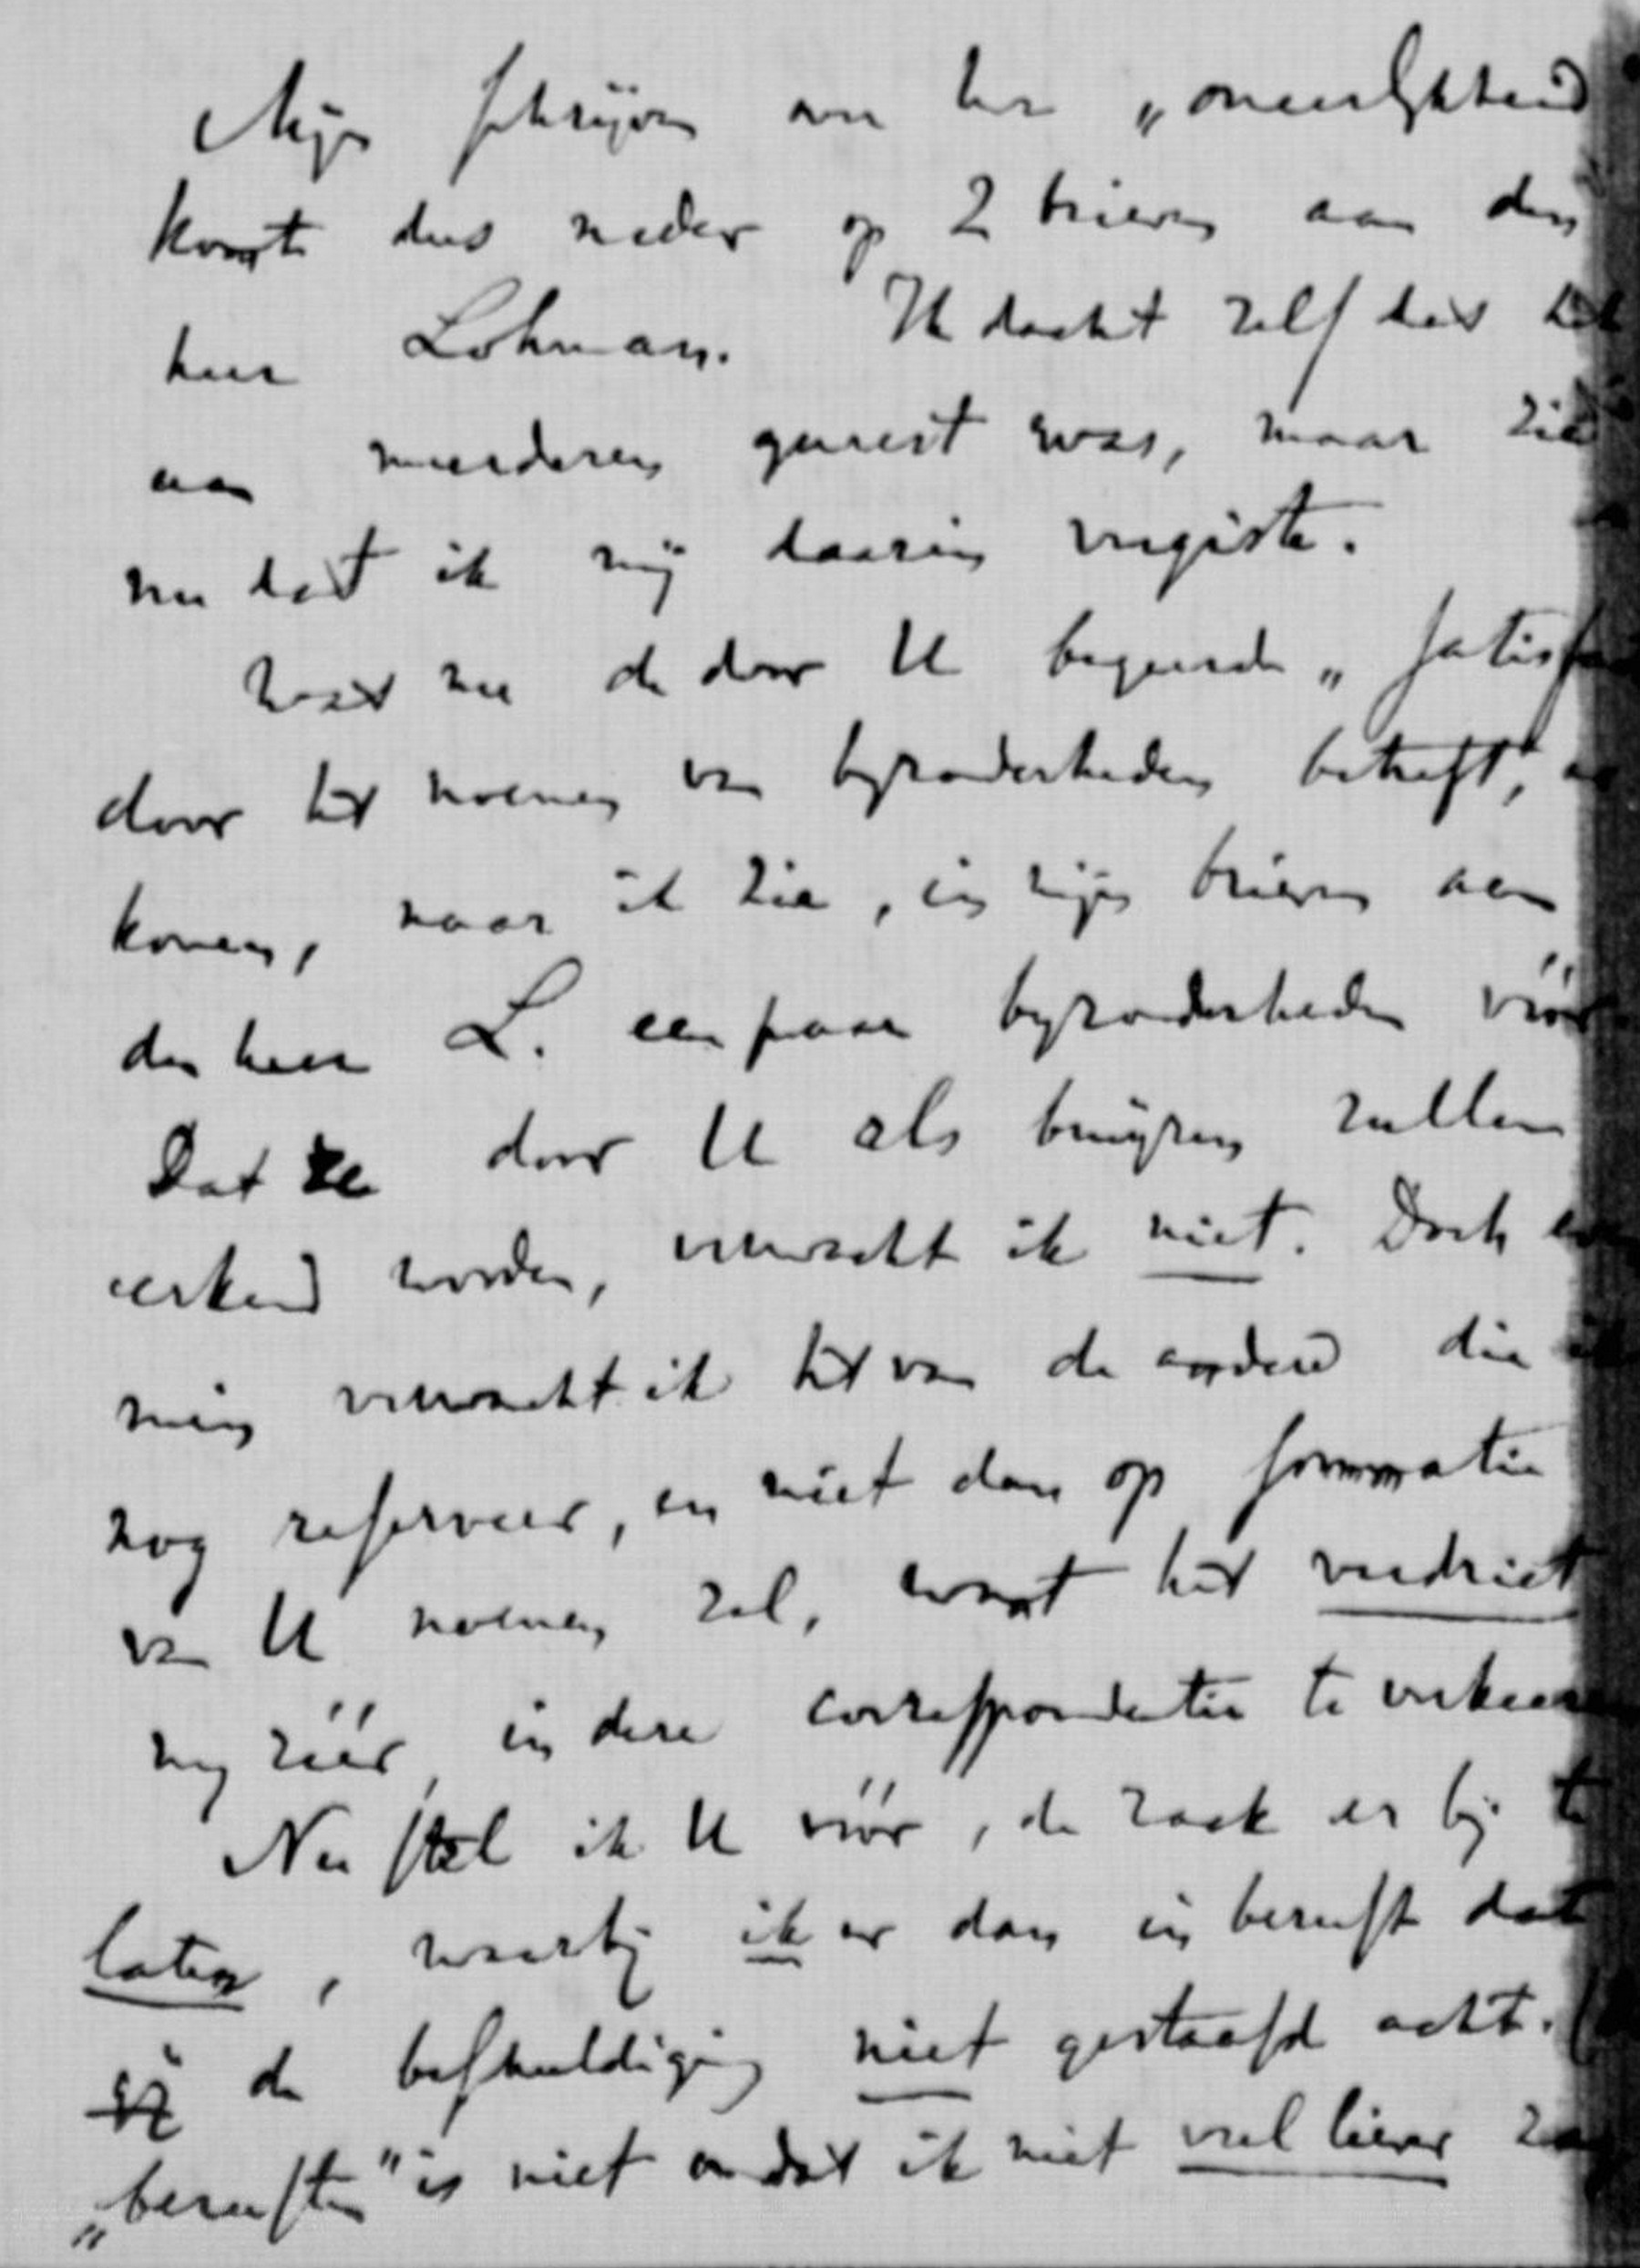 Mijn schrijven over her „oneerlijkheid
komt dus neder op 2 brieven aan den
heer Lohman. Ik dacht zelf dat het
aan meerderen geweest was, maar zie
nu dat ik mij daarin vergiste.
Wat nu de door U begeerde „satisf
door het noemen van byzonderheden betreft,"
komen, naar ik zie, in mijn brieven aan
den heer L. een paar byzonderheden vóór
Dat ze door U als bewijzen zullen
erkend worden, verwacht ik niet. Doch
min verwacht ik het van de andere die ik
nog reserveer, en niet dan op sommatie
van U noemen zal, want het verdriet
my zéér, in deze correspondentie te verkeeren
Nu stel ik U vóór, de zaak er bij te
laten, waarbij ik er dan in berust dat
gij de beschuldiging niet gestaafd acht. (
„berusten" is niet omdat ik niet veel liever zag